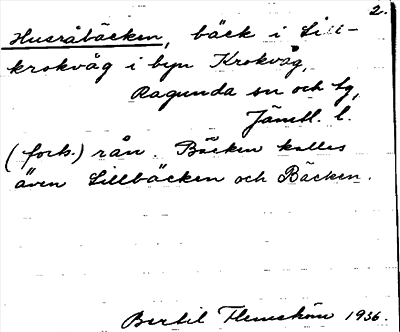 2.
Husråbäcken, bäck i Lill-
krokvåg i byn Krokvåg,
Ragunda sn och tg,
Jämtl. l.
(forts.) rån. Bäcken kallas
även Lillbäcken och Bäcken.
Bertil Flemström 1936.